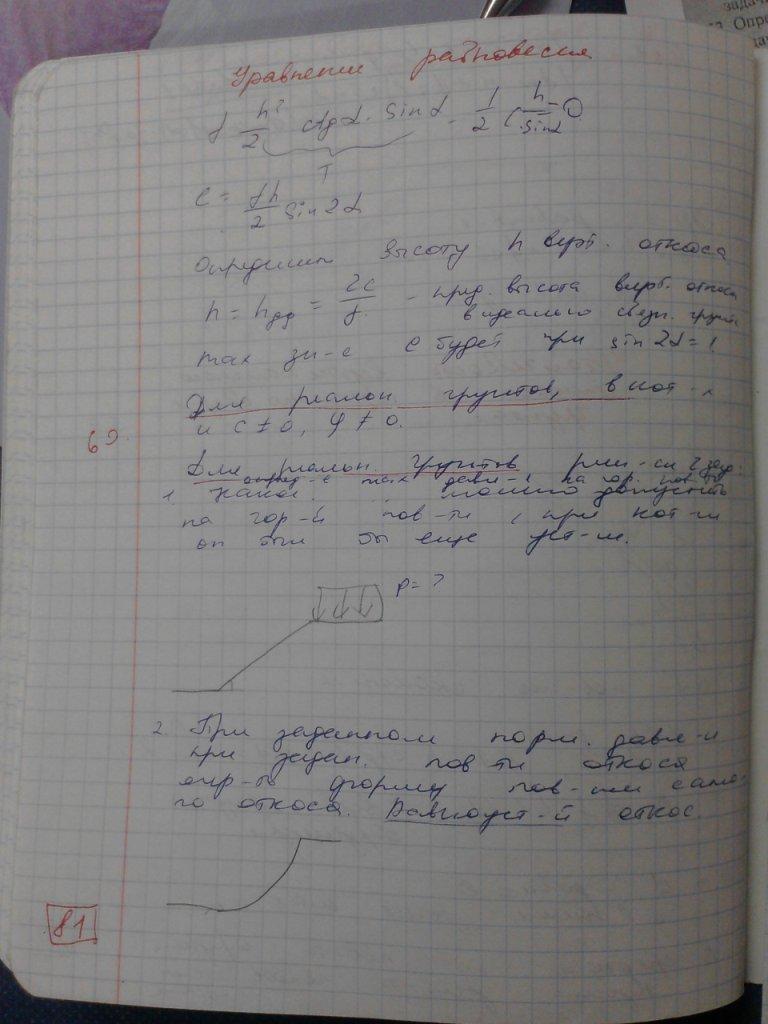 Уравнение равновесия
γ h²/2 ctgα · sinα - 1/2 c h/sinα = 0
T
c = γh/2 sin2α
Определим высоту h верт. откоса
h = h = 2c/γ - пред. высота верт. откоса
в идеально связн. грунте
max зн-е c будет при sin2α=1
Для реальн. грунтов, в кот-х
и c ≠ 0, φ ≠ 0.
69.
Для реальн. грунтов реш-ся 2 зад.
опред-е max давл-я на гор. пов-ть
1 какое можно допустить
на гор-й пов-ти, при кот-м
он был бы еще уст-м.
P = ?
2. При заданном норм. давл-и
при задан. пов-ти откоса
опр-ть форму пов-ти само-
го откоса. Равноуст-й откос.
81